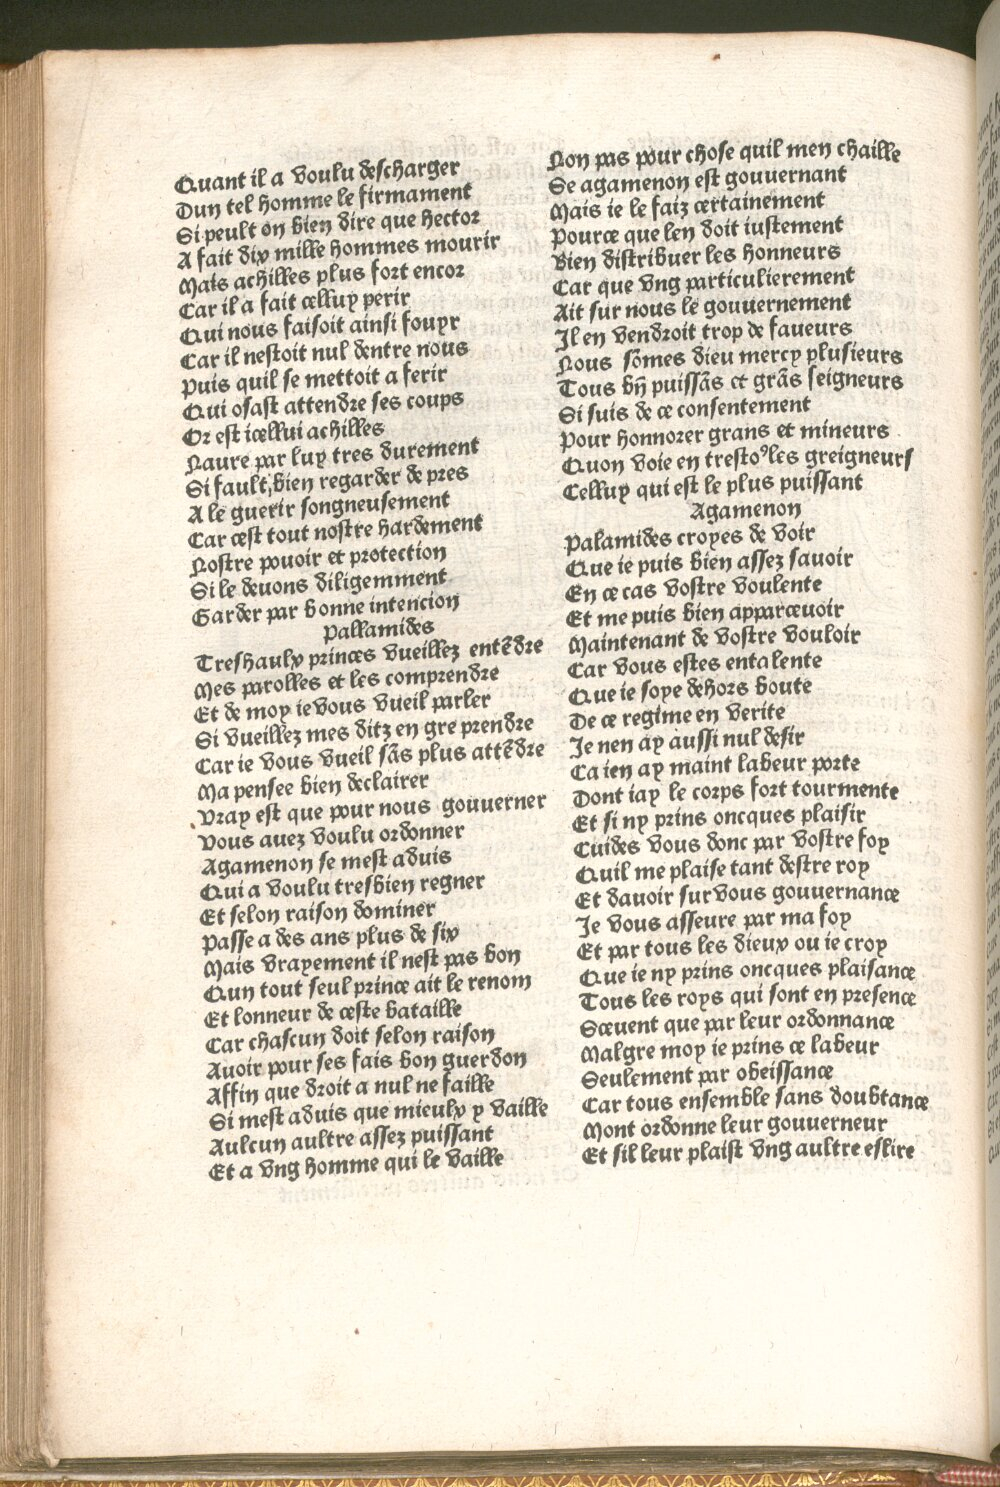 Quant il a voulu descharger
Dun tel homme le firmament
Si peult on bien dire que hector
A fait dix mille hommes mourir
Mais achilles plus fort encor
Car il a fait celluy perir
Qui nous faisoit ainsi fouyr
Car il nestoit nul dentre nous
Puis quil se mettoit a ferir
Qui osast attendre ses coups
Or est icellui achilles
Naure par luy tres durement
Si fault bien regarder de pres
A le guerir songneusement
Car cest tout nostre hardement
Nostre pouoir et protection
Si le deuons diligemment
Garder par bonne intencion
Pallamides
Treshaulx princes vueillez entēdre
Mes parolles et les comprendre
Et de moy ie vous vueil parler
Si vueillez mes ditz en gre prendre
Car ie vous vueil sãs plus attēdre
Ma pensee bien declairer
Vray est que pour nous gouuerner
Vous auez voulu ordonner
Agamenon se mest aduis
Qui a voulu tresbien regner
Et selon raison dominer
Passe a des ans plus de six
Mais vrayement il nest pas bon
Qun tout seul prince ait le renom
Et lonneur de ceste bataille
Car chascun doit selon raison
Auoir pour ses fais bon guerdon
Affin que droit a nul ne faille
Si mest aduis que mieulx y vaille
Aulcun aultre assez puissant
Et a vng homme qui le vaille
Non pas pour chose quil men chaille
Se agamenon est gouuernant
Mais ie le faiz certainement
Pource que len doit iustement
Bien distribuer les honneurs
Car que vng particulierement
Ait sur nous le gouuernement
Il en vendroit trop de faueurs
Nous sõmes dieu mercy plusieurs
Tous bñ puissãs et grãs seigneurs
Si suis de ce consentement
Pour honnorer grans et mineurs
Quon voie en tresto⁹ les greigneurs
Celluy qui est le plus puissant
Agamenon
Palamides croyes de voir
Que ie puis bien assez sauoir
En ce cas vostre voulente
Et me puis bien apparceuoir
Maintenant de vostre vouloir
Car vous estes entalente
Que ie soye dehors boute
De ce regime en verite
Je nen ay aussi nul desir
Ca ien ay maint labeur porte
Dont iay le corps fort tourmente
Et si ny prins oncques plaisir
Cuides vous donc par vostre foy
Quil me plaise tant destre roy
Et dauoir sur vous gouuernance
Je vous asseure par ma foy
Et par tous les dieux ou ie croy
Que ie ny prins oncques plaisance
Tous les roys qui sont en presence
Sceuent que par leur ordonnance
Malgre moy ie prins ce labeur
Seulement par obeissance
Car tous ensemble sans doubtance
Mont ordonne leur gouuerneur
Et sil leur plaist vng aultre eslire